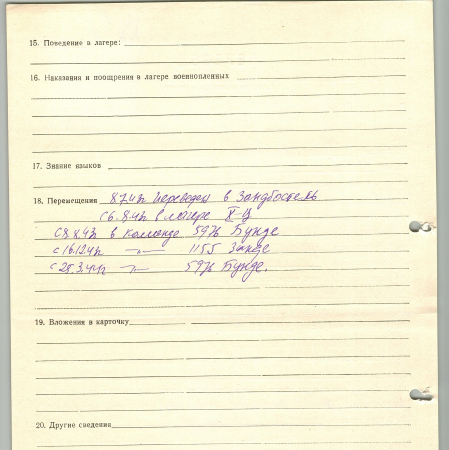 15. Поведение в лагере:
16. Наказания и поощрения в лагере военнопленных
17. Знание языков
18. Перемещения переведен в Зандбостель
в лагере X Ц
в команде 5976 Бунде
1155 Занде
5976 Бунде.
19. Вложения в карточку
20. Другие сведения